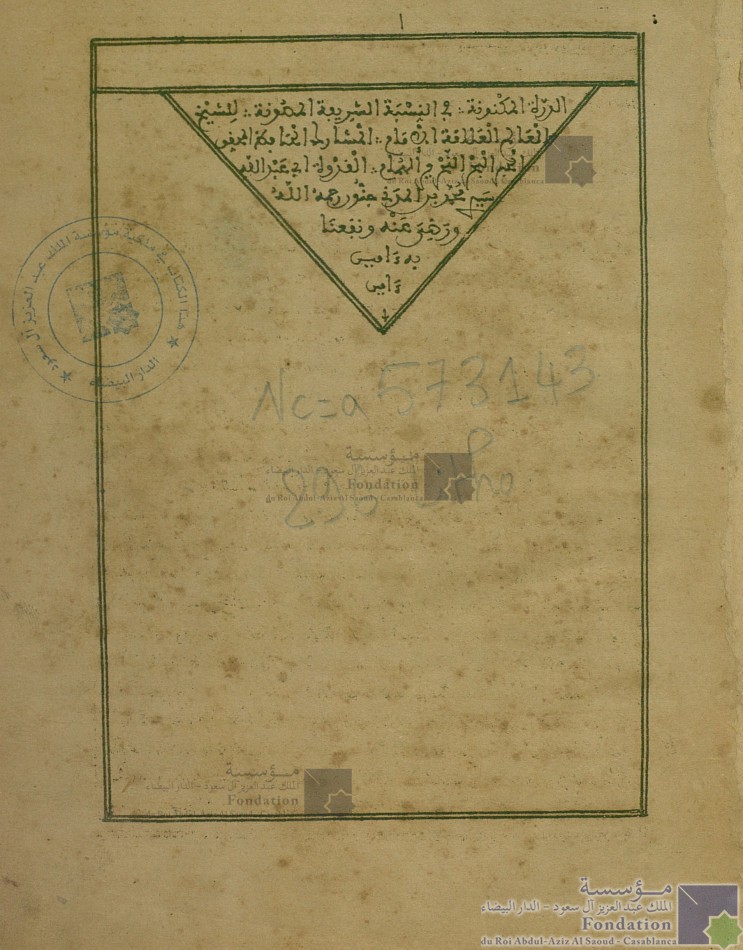 الدرة المكنونة في النسبة الشريفة المصونة للشيخ
العالم العلامة الإمام المشارك الحافظ المحقق
الهمام القدوة أبي عبد الله
سيدي محمد بن المدني جنون رحمه الله
ورضي عنه ونفعنا
به ءامين
ءامين
هذا الكتاب في ملكية مؤسسة الملك عبد العزيز آل سعود
الدار البيضاء
Nc=a 573143
مؤسسة
الملك عبد العزيز آل سعود - الدار البيضاء
Fondation
du Roi Abdul-Aziz Al Saoud - Casablanca
مؤسسة
الملك عبد العزيز آل سعود - الدار البيضاء
Fondation
مؤسسة
الملك عبد العزيز آل سعود - الدار البيضاء
Fondation
du Roi Abdul-Aziz Al Saoud - Casablanca